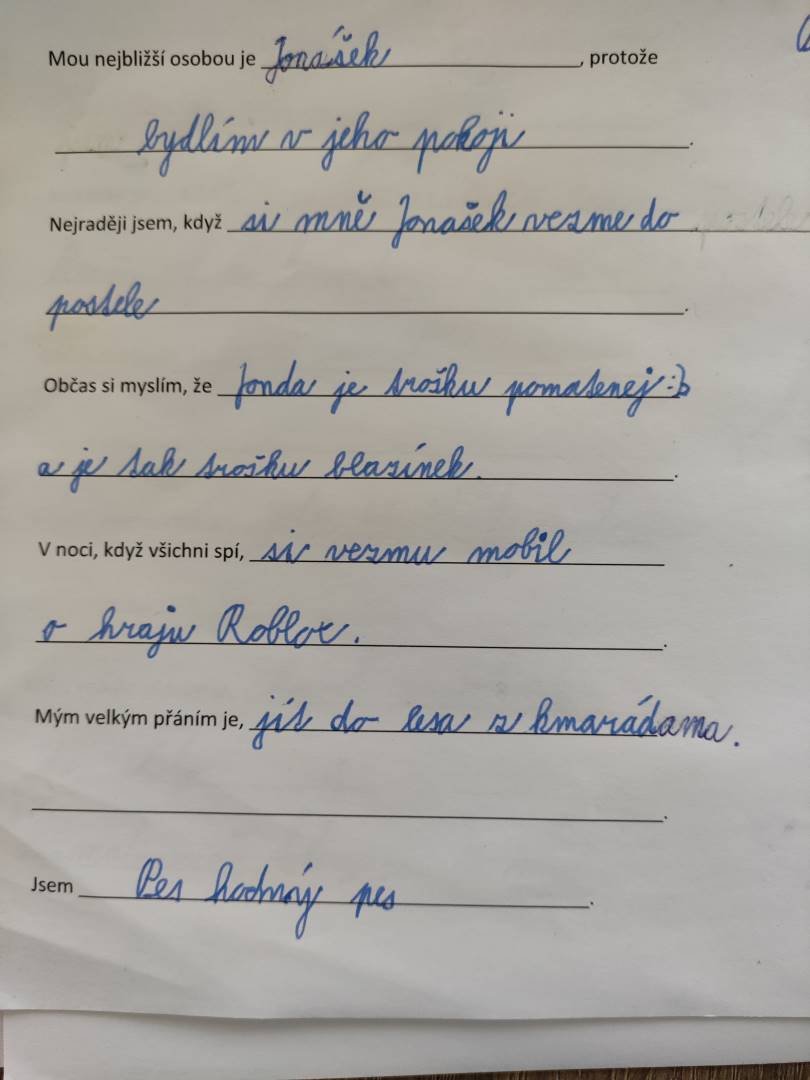 Mou nejbližší osobou je Jonášek, protože
bydlím v jeho pokoji.
Nejraději jsem, když si mně Jonašek vezme do
postele.
Občas si myslím, že Jonda je trošku pomatenej :D
a je tak trošku blazínek.
V noci, když všichni spí, si vezmu mobil
a hraju Roblox.
Mým velkým přáním je, jít do lesa z kmarádama.
Jsem Pes hodnný pes.